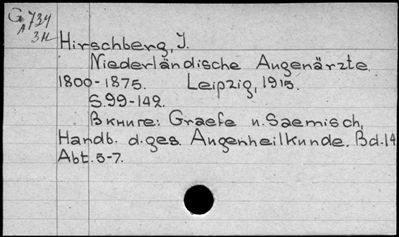 G 734
A 3н
Hirschberg, J.
Niederländische Augenärzte
1800-1875. Leipzig, 1915.
S.99-142.
Вкниге: Graefe u. Saemisch,
Handb. d. ges. Augenheilkunde. Bd.14
Abt.5-7.